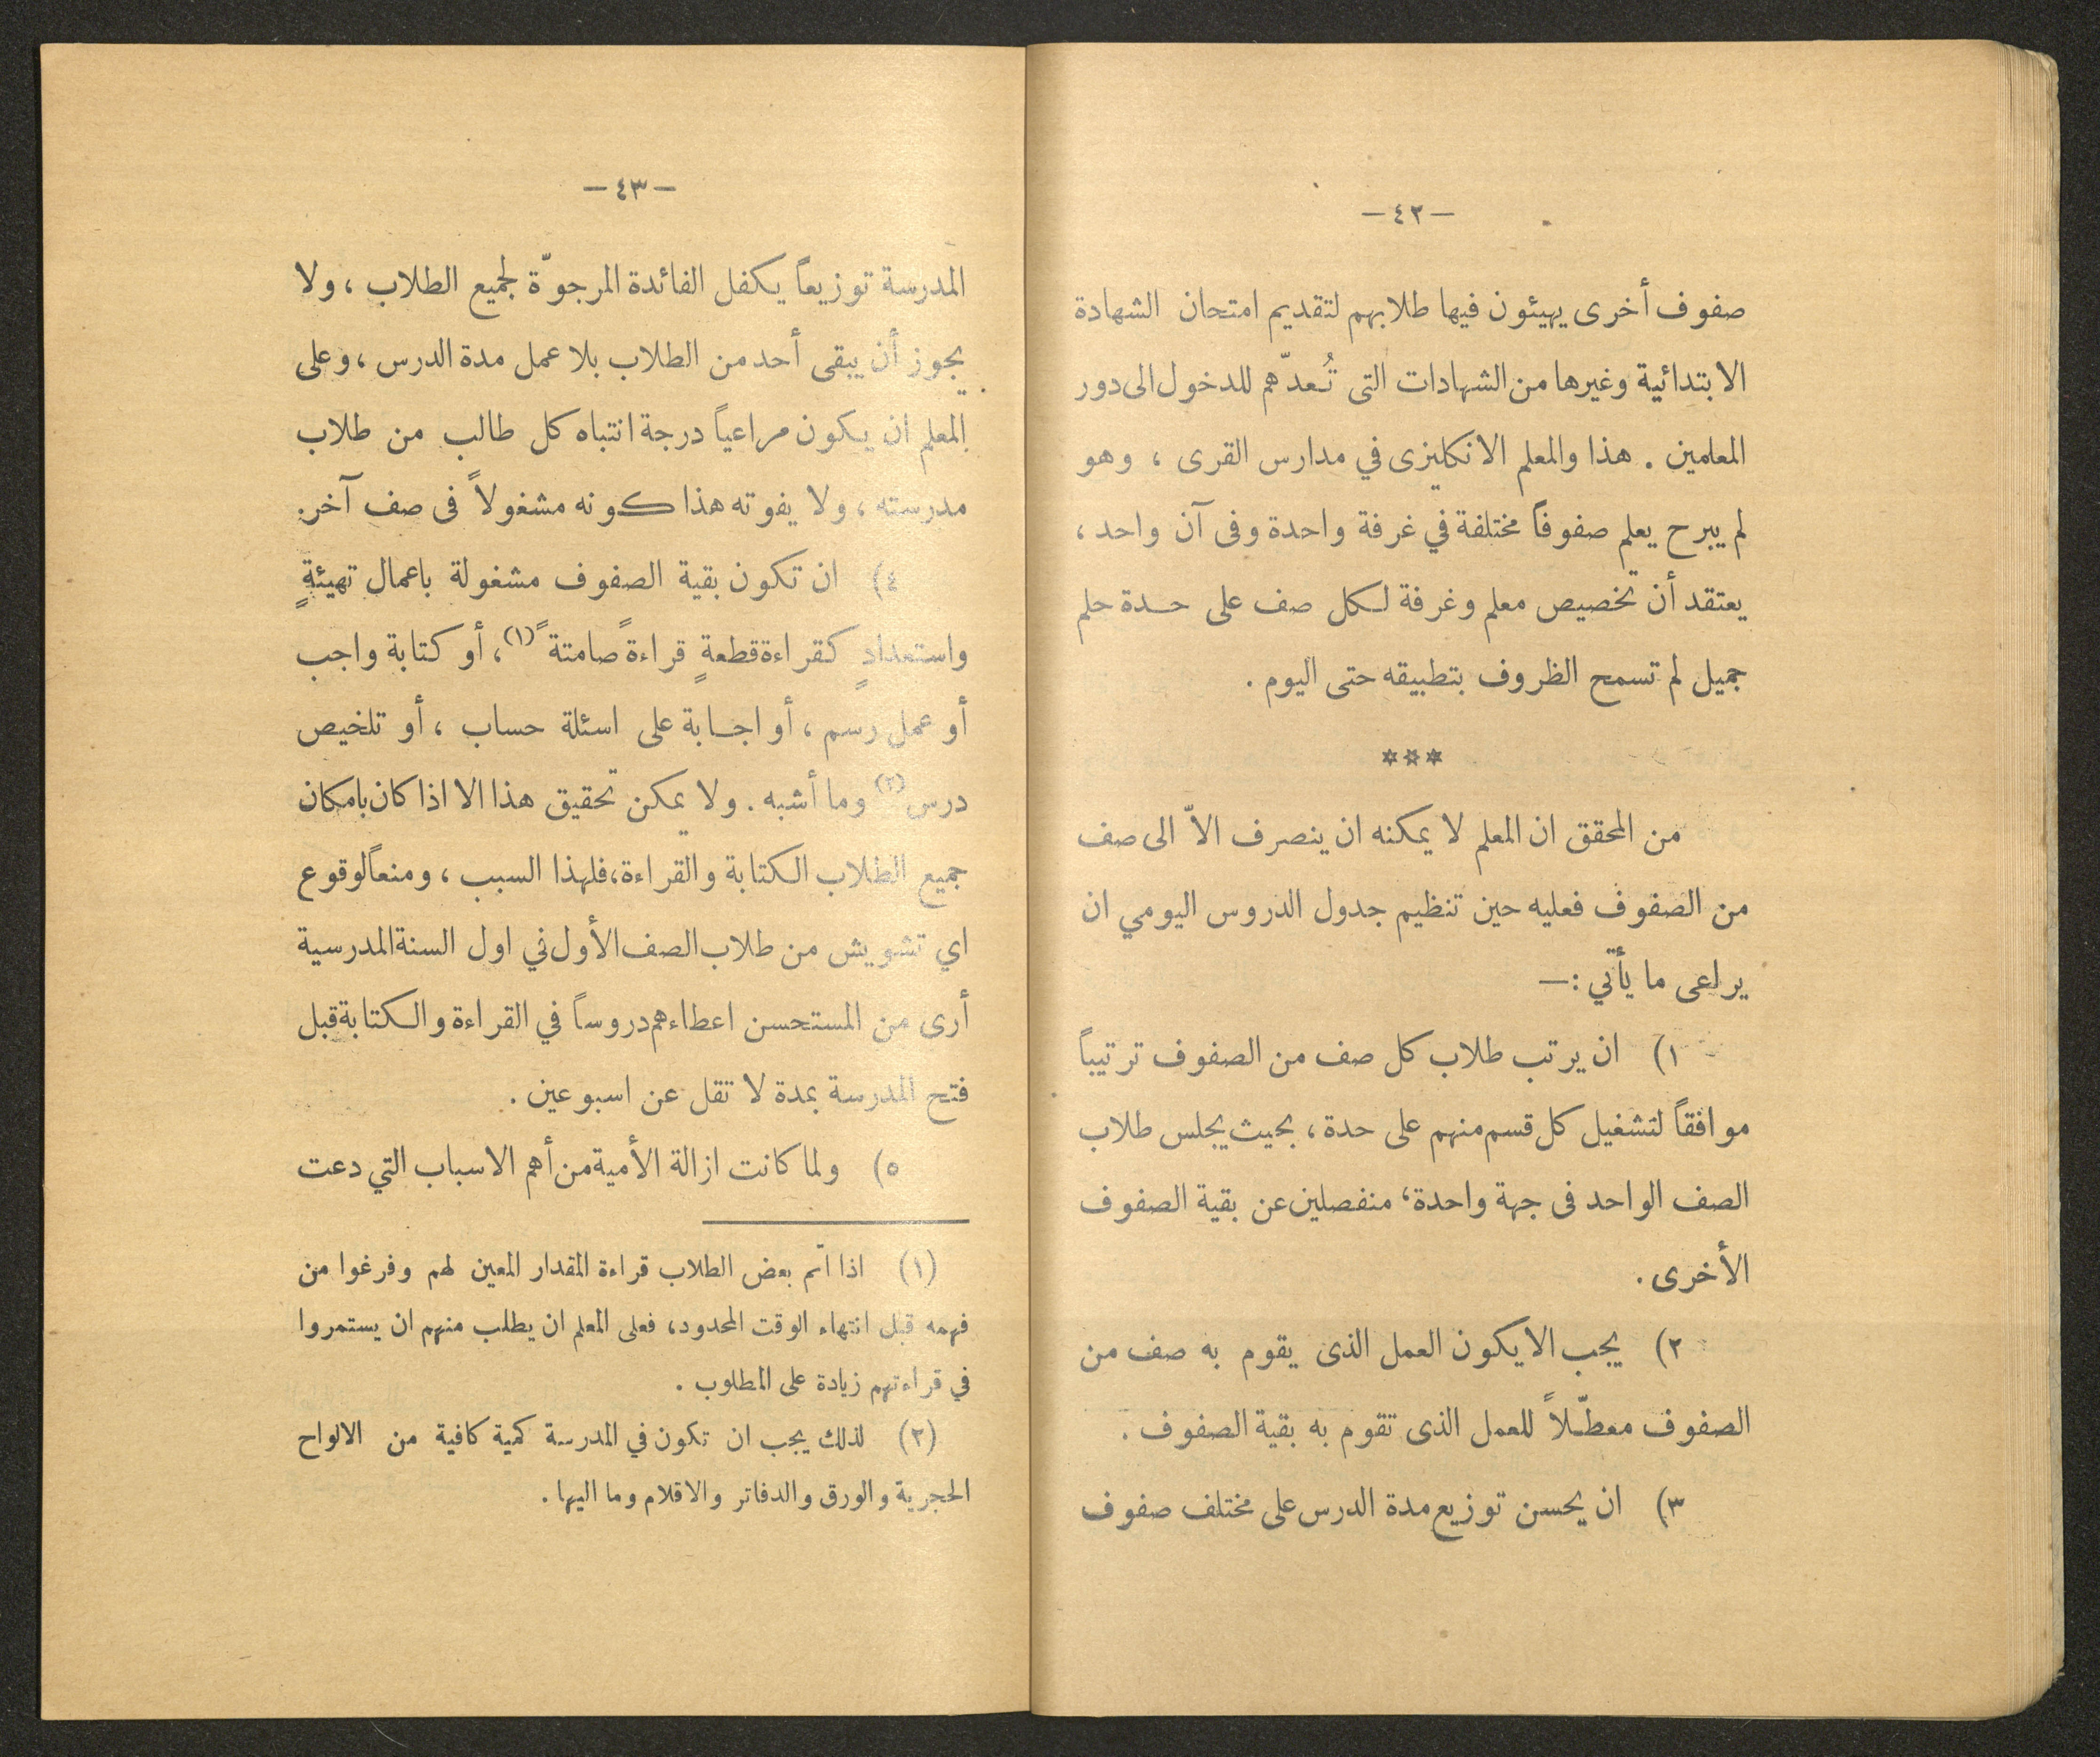 — ٤٢ —
صفوف أخرى يهيئون فيها طلابهم لتقديم امتحان الشهادة
الابتدائية وغيرها من الشهادات التى تُعدّهم للدخول الى دور
المعلمين . هذا والمعلم الانكليزى في مدارس القرى ، وهو
لم يبرح يعلم صفوفاً مختلفة في غرفة واحدة وفى آن واحد ،
يعتقد أن تخصيص معلم وغرفة لكل صف على حدة حلم
جميل لم تسمح الظروف بتطبيقه حتى اليوم .
***
من المحقق ان المعلم لا يمكنه ان ينصرف الاّ الى صف
من الصفوف فعليه حين تنظيم جدول الدروس اليومي ان
يراعى ما يأتي :—
١) ان يرتب طلاب كل صف من الصفوف ترتيباً
موافقاً لتشغيل كل قسم منهم على حدة ، بحيث يجلس طلاب
الصف الواحد فى جهة واحدة، منفصلين عن بقية الصفوف
الأخرى .
٢) يجب الا يكون العمل الذى يقوم به صف من
الصفوف معطّلاً للعمل الذى تقوم به بقية الصفوف .
٣) ان يحسن توزيع مدة الدرس على مختلف صفوف
— ٤٣ —
المدرسة توزيعاً يكفل الفائدة المرجوّة لجميع الطلاب ، ولا
يجوز أن يبقى أحد من الطلاب بلا عمل مدة الدرس ، وعلى
المعلم ان يكون مراعياً درجة انتباه كل طالب من طلاب
مدرسته ، ولا يفوته هذا كونه مشغولاً فى صف آخر .
٤) ان تكون بقية الصفوف مشغولة باعمال تهيئةٍ
واستعدادٍ كقراءة قطعةٍ قراءةً صامتةً (١)، أو كتابة واجب
أو عمل رسم ، أو اجابة على اسئلة حساب ، أو تلخيص
درس (٢) وما أشبه . ولا يمكن تحقيق هذا الا اذا كان بامكان
جميع الطلاب الكتابة والقراءة، فلهذا السبب ، ومنعاً لوقوع
اي تشويش من طلاب الصف الأول في اول السنة المدرسية
أرى من المستحسن اعطاءهم دروساً في القراءة والكتابة قبل
فتح المدرسة بمدة لا تقل عن اسبوعين .
٥) ولما كانت ازالة الأمية من أهم الاسباب التي دعت
(١) اذا اتم بعض الطلاب قراءة المقدار المعين لهم وفرغوا من
فهمه قبل انتهاء الوقت المحدود، فعلى المعلم ان يطلب منهم ان يستمروا
في قراءتهم زيادة على المطلوب .
(٢) لذلك يجب ان تكون في المدرسة كمية كافية من الالواح
الحجرية والورق والدفاتر والاقلام وما اليها .